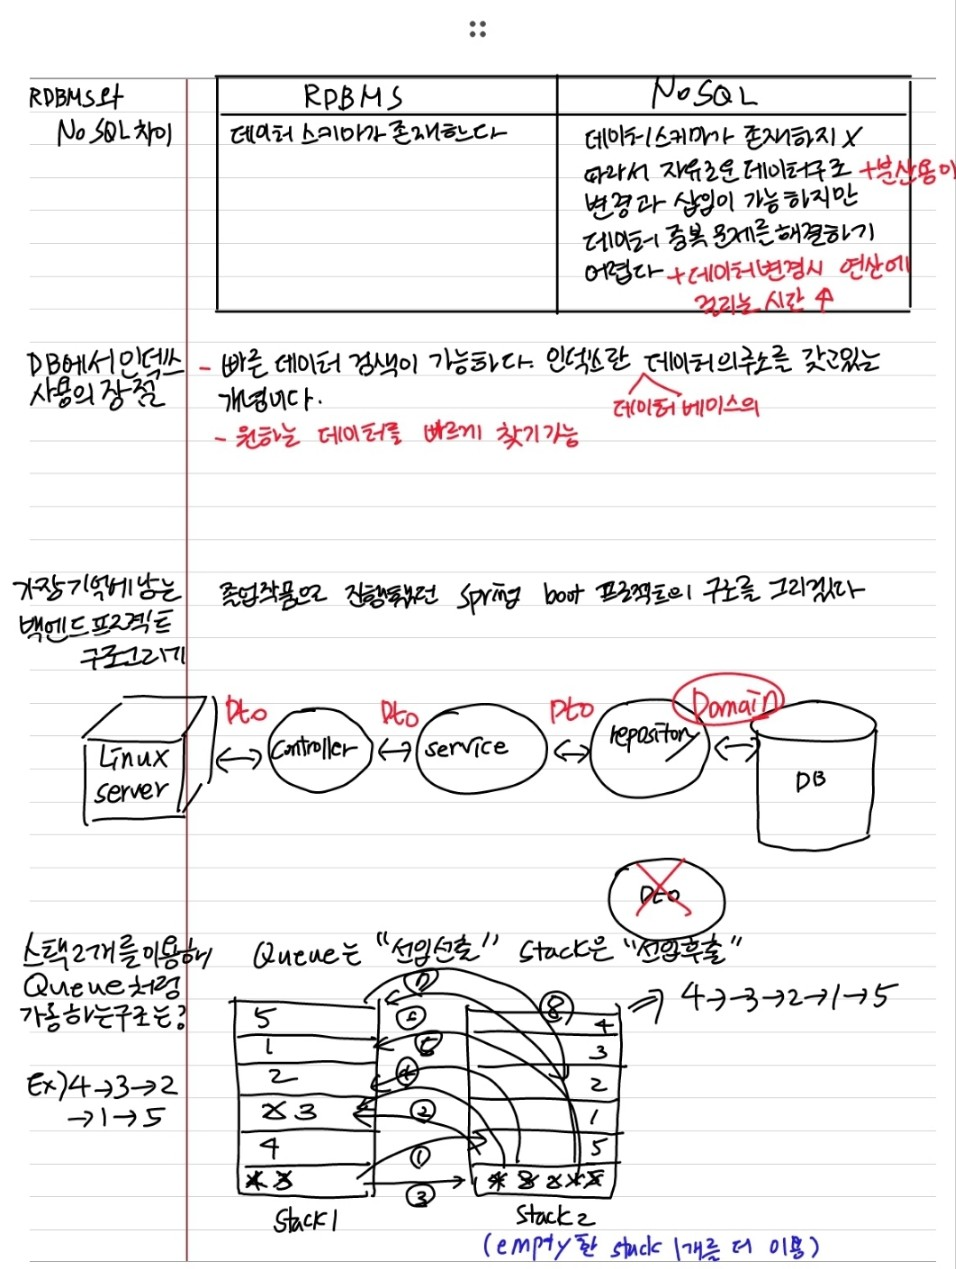 RDBMS와
NoSQL 차이
RDBMS
NoSQL
데이터 스키마가 존재한다
데이터스키마가 존재하지 X
따라서 자유로운 데이터구조 +분산용이
변경과 삽입이 가능하지만
데이터 중복 문제를 해결하기
어렵다 +데이터변경시 연산에
걸리는 시간 ↑
DB에서 인덱스
사용의 장점
- 빠른 데이터 검색이 가능하다. 인덱스란 데이터의 주소를 갖고있는
개념이다.
데이터 베이스의
- 원하는 데이터를 빠르게 찾기 가능
가장 기억에 남는
백엔드 프로젝트
구조그리기
졸업작품으로 진행했던 spring boot 프로젝트의 구조를 그리겠다
Dto Dto Dto Domain
Linux
server
controller
service
repository
DB
Dto
스택2개를 이용해
Queue처럼
가동하는구조는?
Queue는 "선입선출" Stack은 "선입후출"
Ex) 4→3→2
→1→5
⇒ 4→3→2→1→5
5
1
2
3
4
⑦
⑤
④
②
①
③
⑧
4
3
2
1
5
Stack1
Stack2
(empty한 stack 1개를 더 이용)